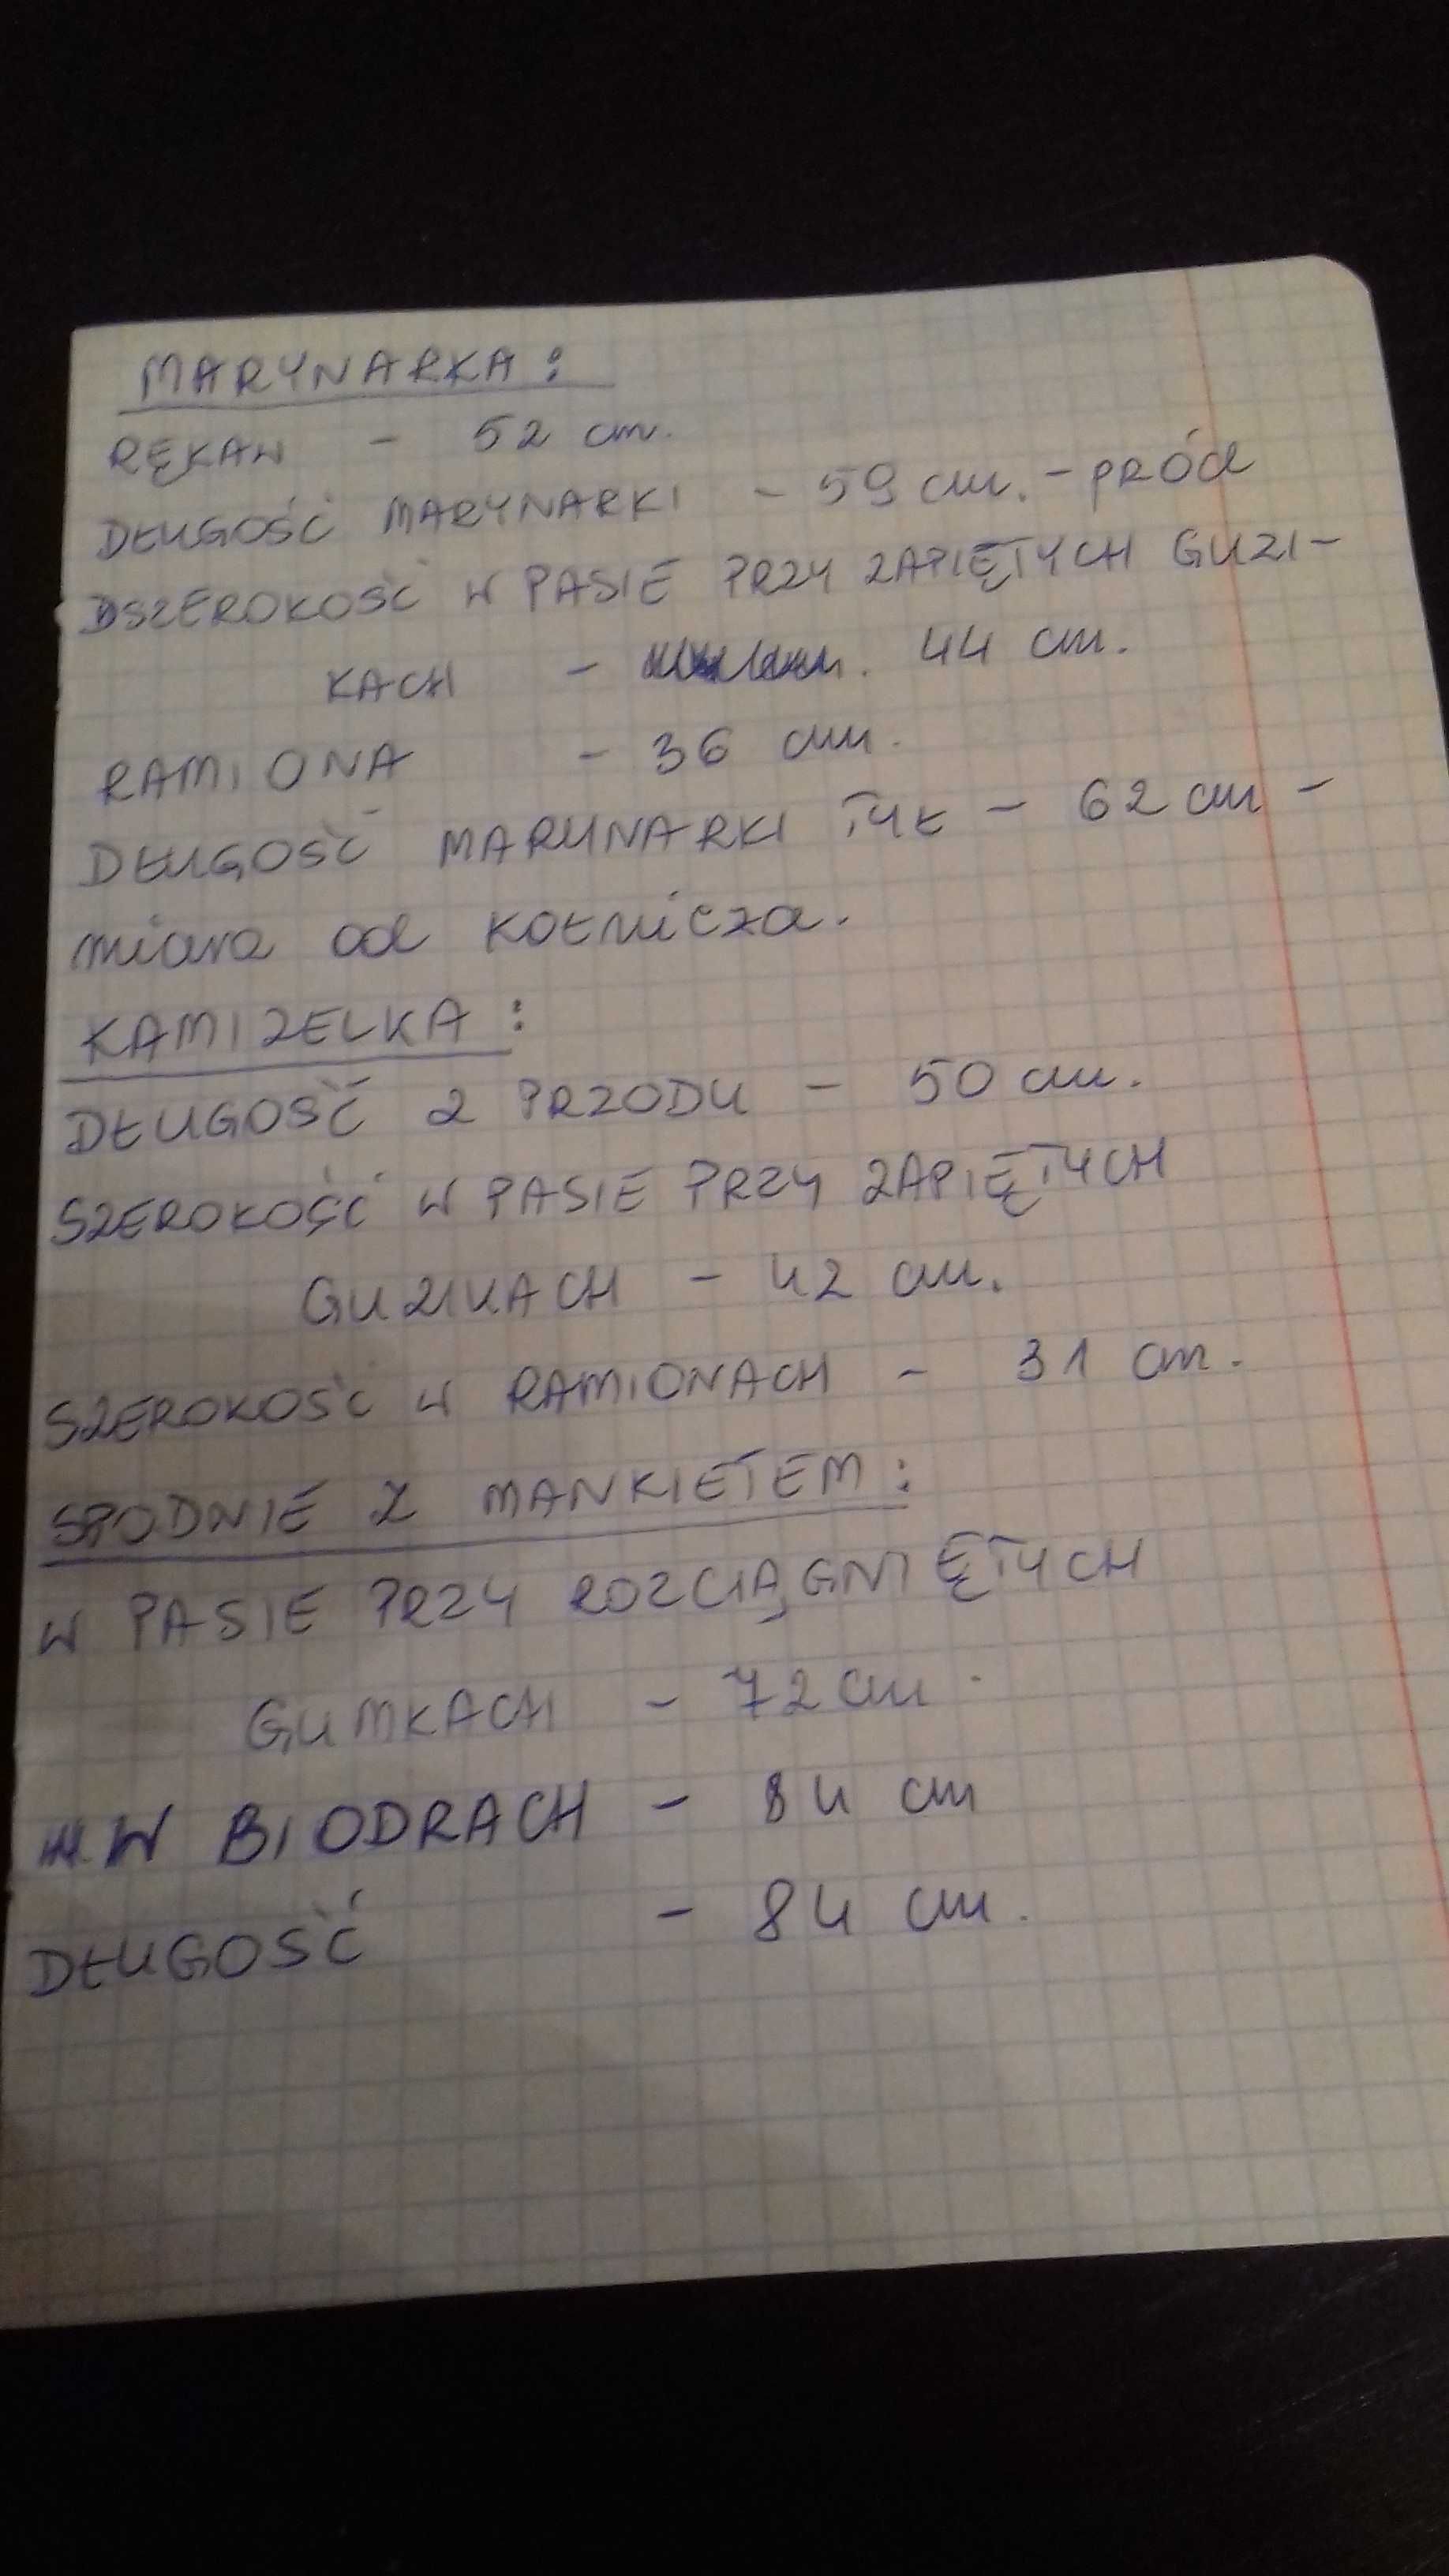 MARYNARKA:
RĘKAW - 52 cm.
DŁUGOŚĆ MARYNARKI - 59 cm. - PRÓD
SZEROKOŚĆ W PASIE PRZY ZAPIĘTYCH GUZI-
KACH - 44 cm.
RAMIONA - 36 cm.
DŁUGOŚĆ MARYNARKI TYŁ - 62 cm -
miara od KOŁNICZA.
KAMIZELKA:
DŁUGOŚĆ Z PRZODU - 50 cm.
SZEROKOŚĆ W PASIE PRZY ZAPIĘTYCH
GUZIKACH - 42 cm.
SZEROKOŚĆ W RAMIONACH - 31 cm.
SPODNIE Z MANKIETEM:
W PASIE PRZY ROZCIĄGNIĘTYCH
GUMKACH - 72 cm.
W BIODRACH - 84 cm
DŁUGOŚĆ - 84 cm.